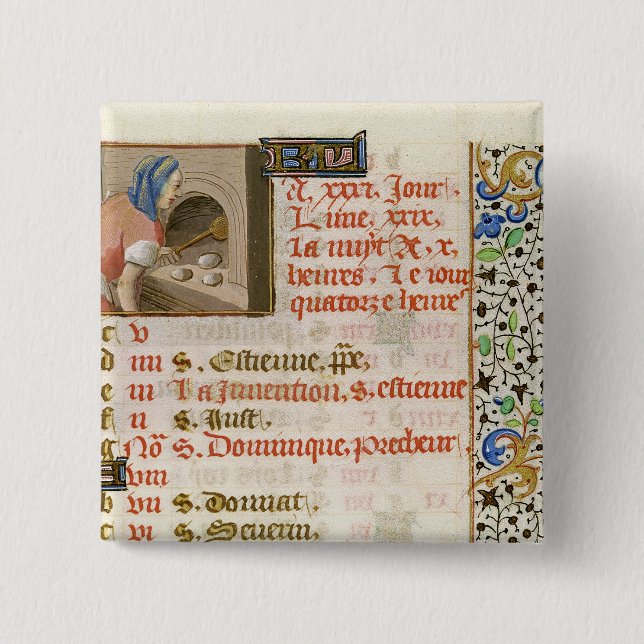 A, xxxi, Jour,
Lune, xxix,
la nuyt A, x,
heures, Le iour
quatorze heure
c v
d iiii s. Estienne, ppe,
e iii La Invention, s, estienne
f ii s. Iust,
g No s. Dominique, precheur,
viii
b vii s. Donnat,
c vi s. Severin,